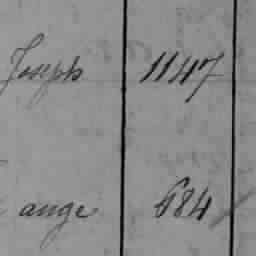 Joseph 1147
ange 684